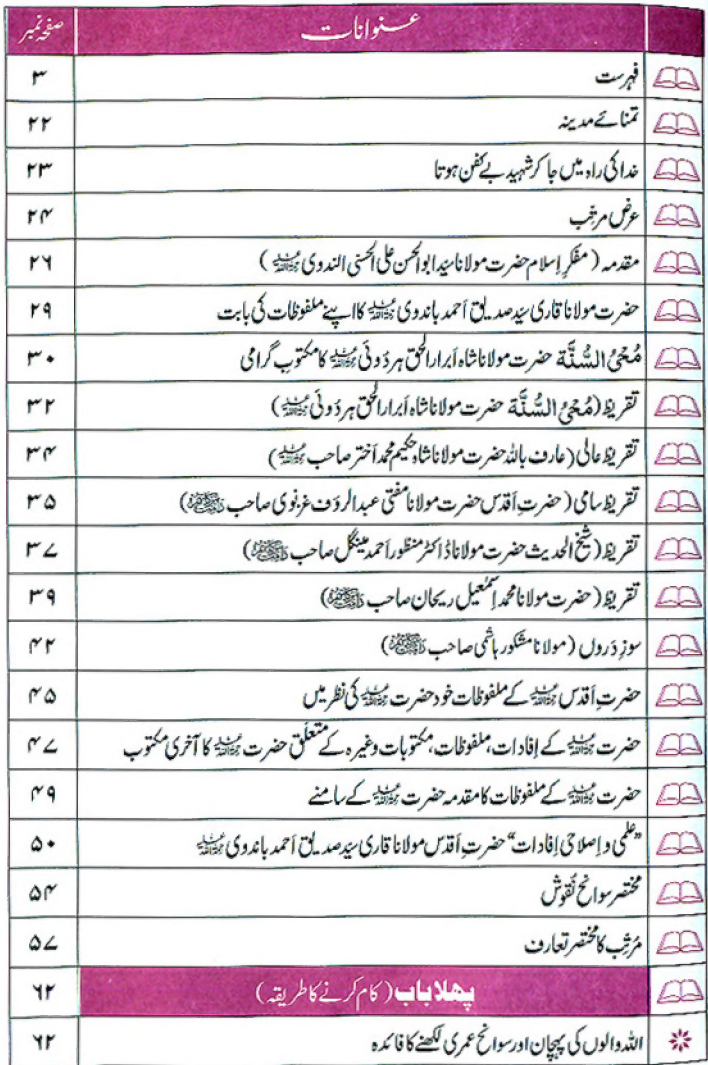 عنوانات صفحہ نمبر
فہرست ۳
تمنائے مدینہ ۲۲
خدا کی راہ میں جا کر شہید بے کفن ہوتا ۲۳
عرض مرتب ۲۴
مقدمہ (مفکرِ اسلام حضرت مولانا سیّد ابوالحسن علی الحسنی الندوی رحمۃ اللہ علیہ) ۲۶
حضرت مولانا قاری سیّد صدیق اَحمد باندوی رحمۃ اللہ علیہ کا اپنے ملفوظات کی بابت ۲۹
مُحْیُ السُّنَّة حضرت مولانا شاہ اَبرار الحق ہردوئی رحمۃ اللہ علیہ کا مکتوب گرامی ۳۰
تقریظ (مُحْیُ السُّنَّة حضرت مولانا شاہ اَبرار الحق ہردوئی رحمۃ اللہ علیہ) ۳۲
تقریظ عالی (عارف باللہ حضرت مولانا شاہ حکیم محمد اَختر صاحب رحمۃ اللہ علیہ) ۳۴
تقریظ سامی (حضرتِ اَقدس حضرت مولانا مفتی عبدالرؤف غزنوی صاحب دامت برکاتہم) ۳۵
تقریظ (شیخ الحدیث حضرت مولانا ڈاکٹر منظور اَحمد مینگل صاحب دامت برکاتہم) ۳۷
تقریظ (حضرت مولانا محمد اِسمٰعیل ریحان صاحب دامت برکاتہم) ۳۹
سوزِ دَروں (مولانا مشکور ہاشمی صاحب دامت برکاتہم) ۴۲
حضرتِ اَقدس رحمۃ اللہ علیہ کے ملفوظات خود حضرت رحمۃ اللہ علیہ کی نظر میں ۴۵
حضرت رحمۃ اللہ علیہ کے اِفادات، ملفوظات، مکتوبات وغیرہ کے متعلّق حضرت رحمۃ اللہ علیہ کا آخری مکتوب ۴۷
حضرت رحمۃ اللہ علیہ کے ملفوظات کا مقدمہ حضرت رحمۃ اللہ علیہ کے سامنے ۴۹
”علمی و اِصلاحی اِفادات“ حضرتِ اَقدس مولانا قاری سیّد صدیق اَحمد باندوی رحمۃ اللہ علیہ ۵۰
مختصر سوانح نُقوش ۵۴
مُرتّب کا مختصر تعارف ۵۷
پہلا باب (کام کرنے کا طریقہ) ۶۲
اللہ والوں کی پہچان اور سوانح عمری لکھنے کا فائدہ ۶۲